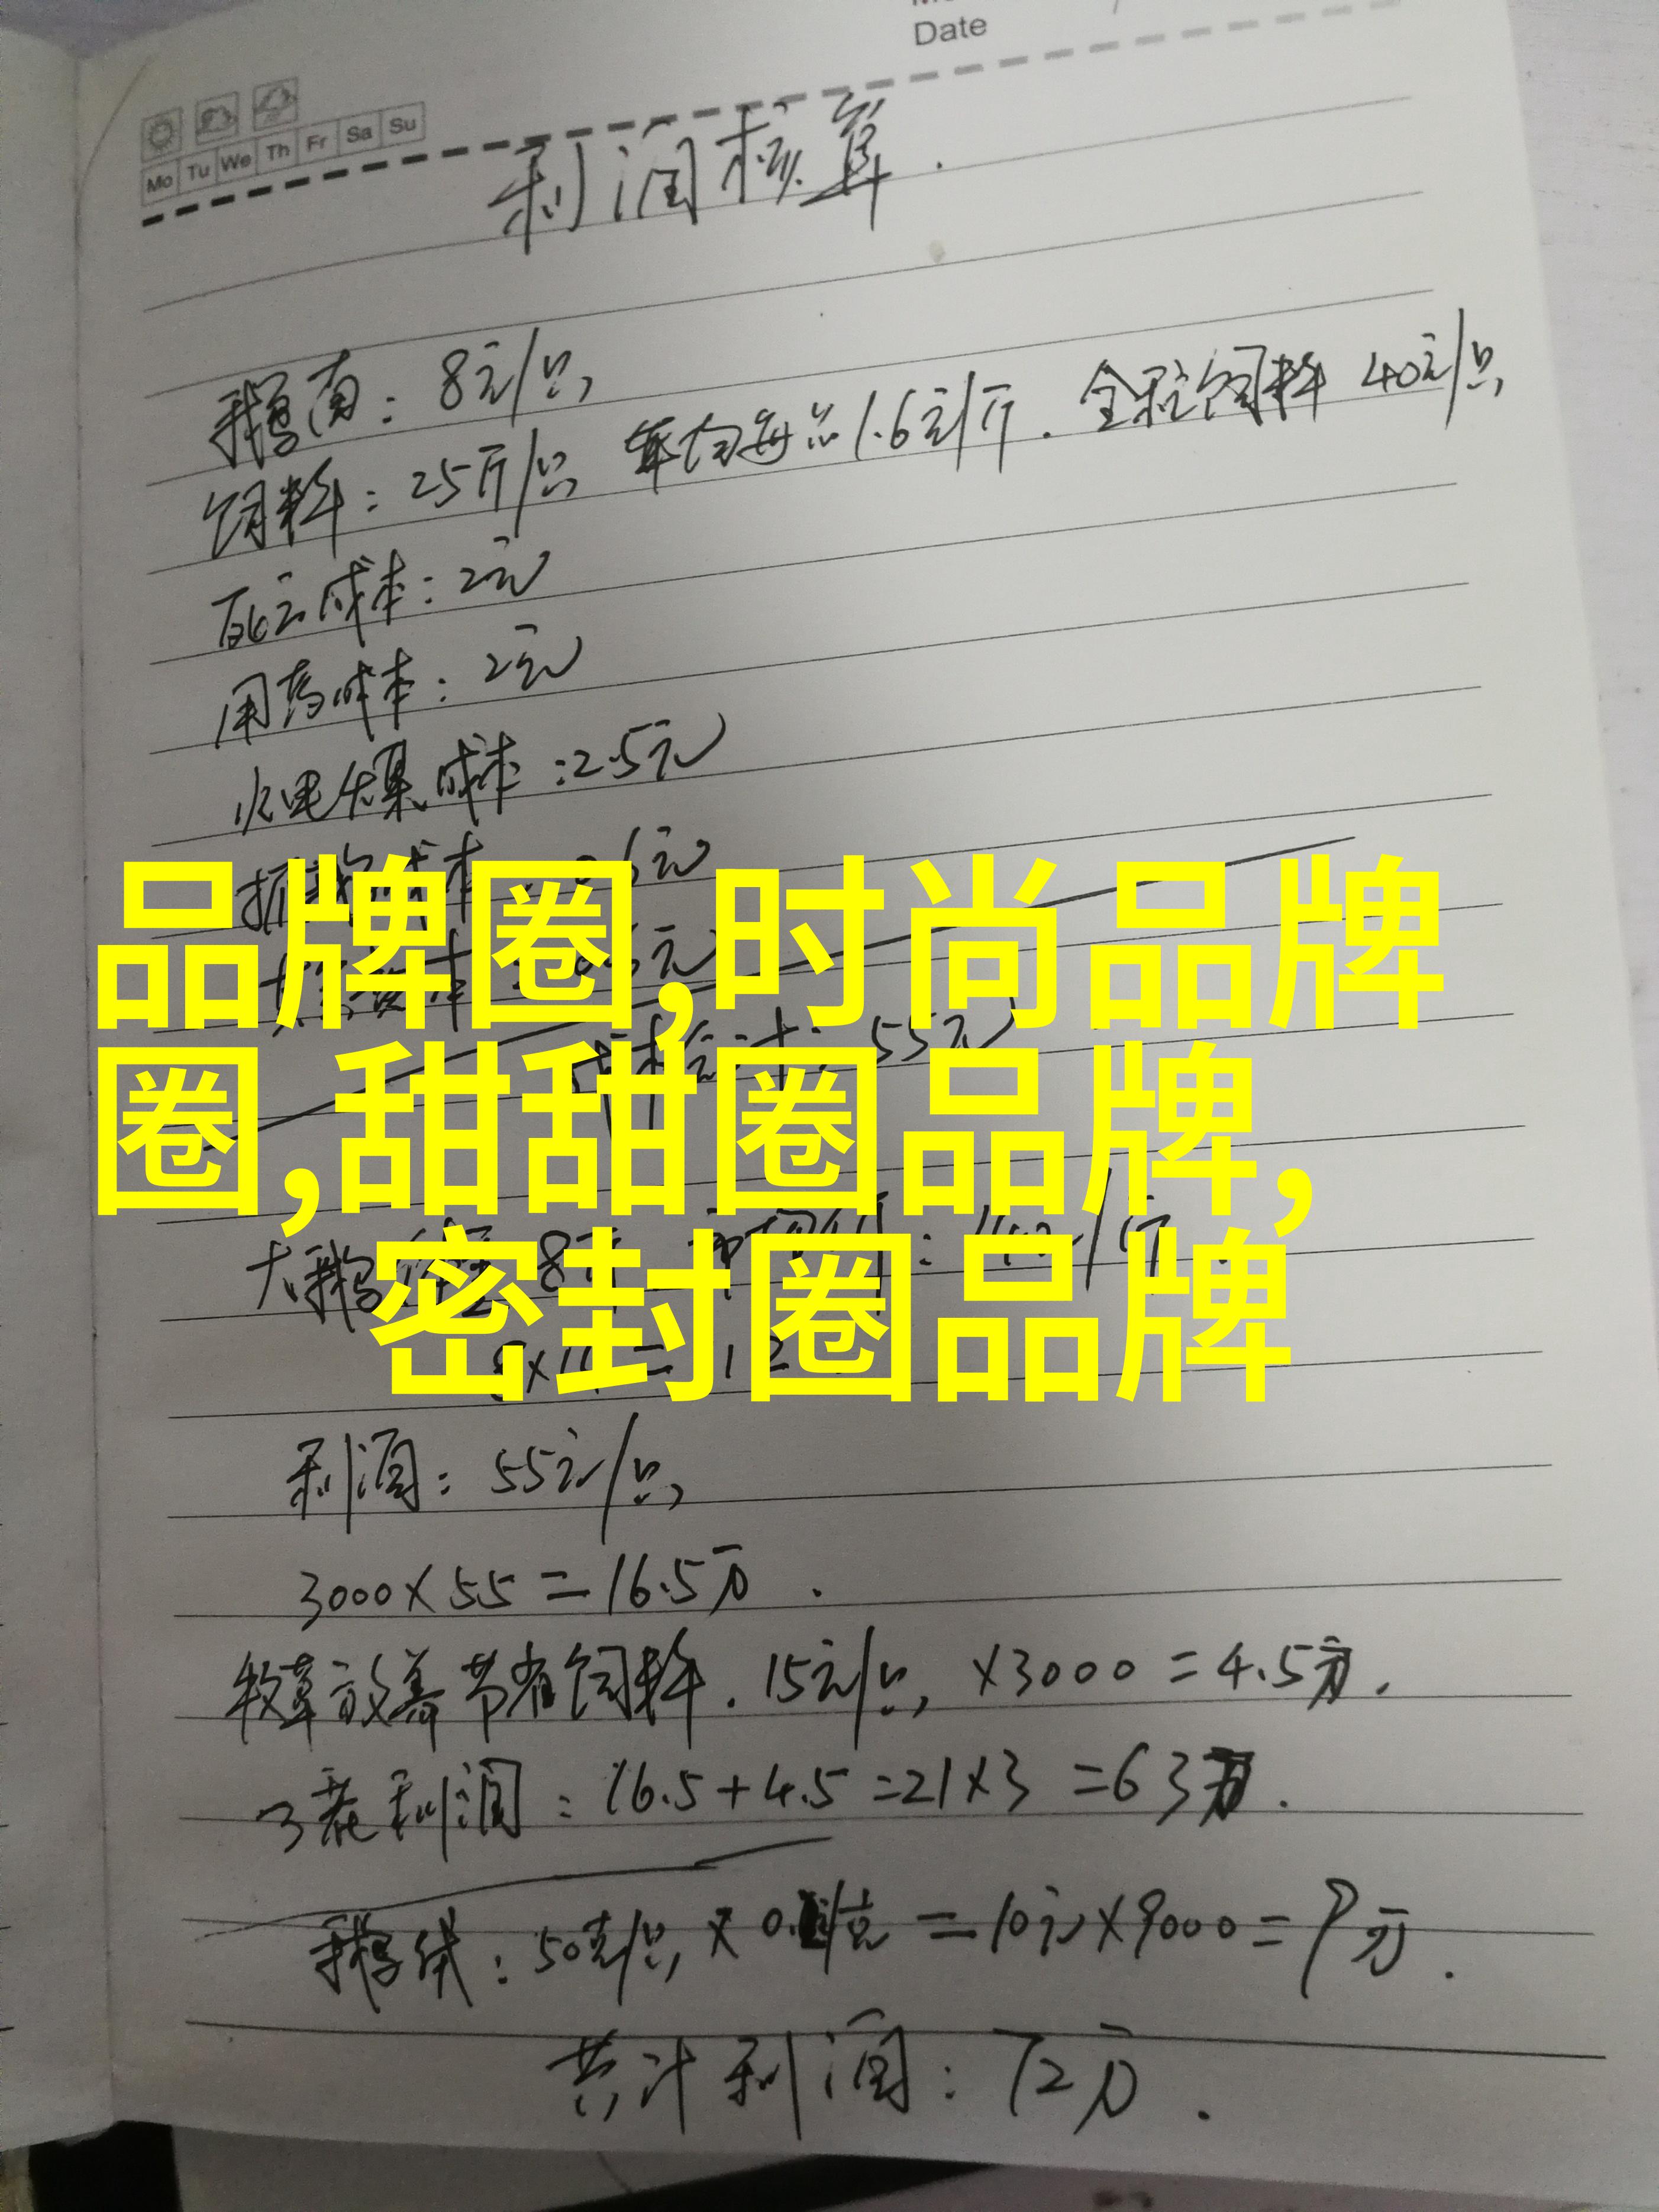 Date
Mo Tu We Th Fr Sa Su
利润核算.
鹅苗: 8元/只
饲料: 25斤/只 1.6元/斤. 全程饲料 40元/只
死亡成本: 2元
用药成本: 2元
水电煤成本: 2.5元
元
元
品牌圈,时尚品牌
55元
圈,甜甜圈品牌,
大鹅
密封圈品牌
利润: 55元/只
3000×55=16.5万.
牧草放养节省饲料. 15元/只 ×3000=4.5万.
3茬利润: 16.5+4.5=21×3=63万.
鹅绒: 50克/只 × =10元×9000=9万.
共计利润: 72万.